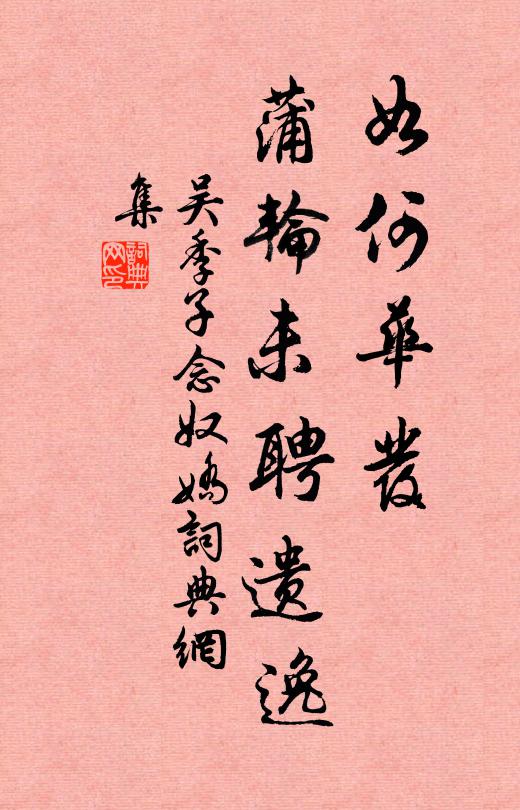 如何華發
蒲輪未聘遺逸
吴季子念奴嬌詞典網
集
詞典網印